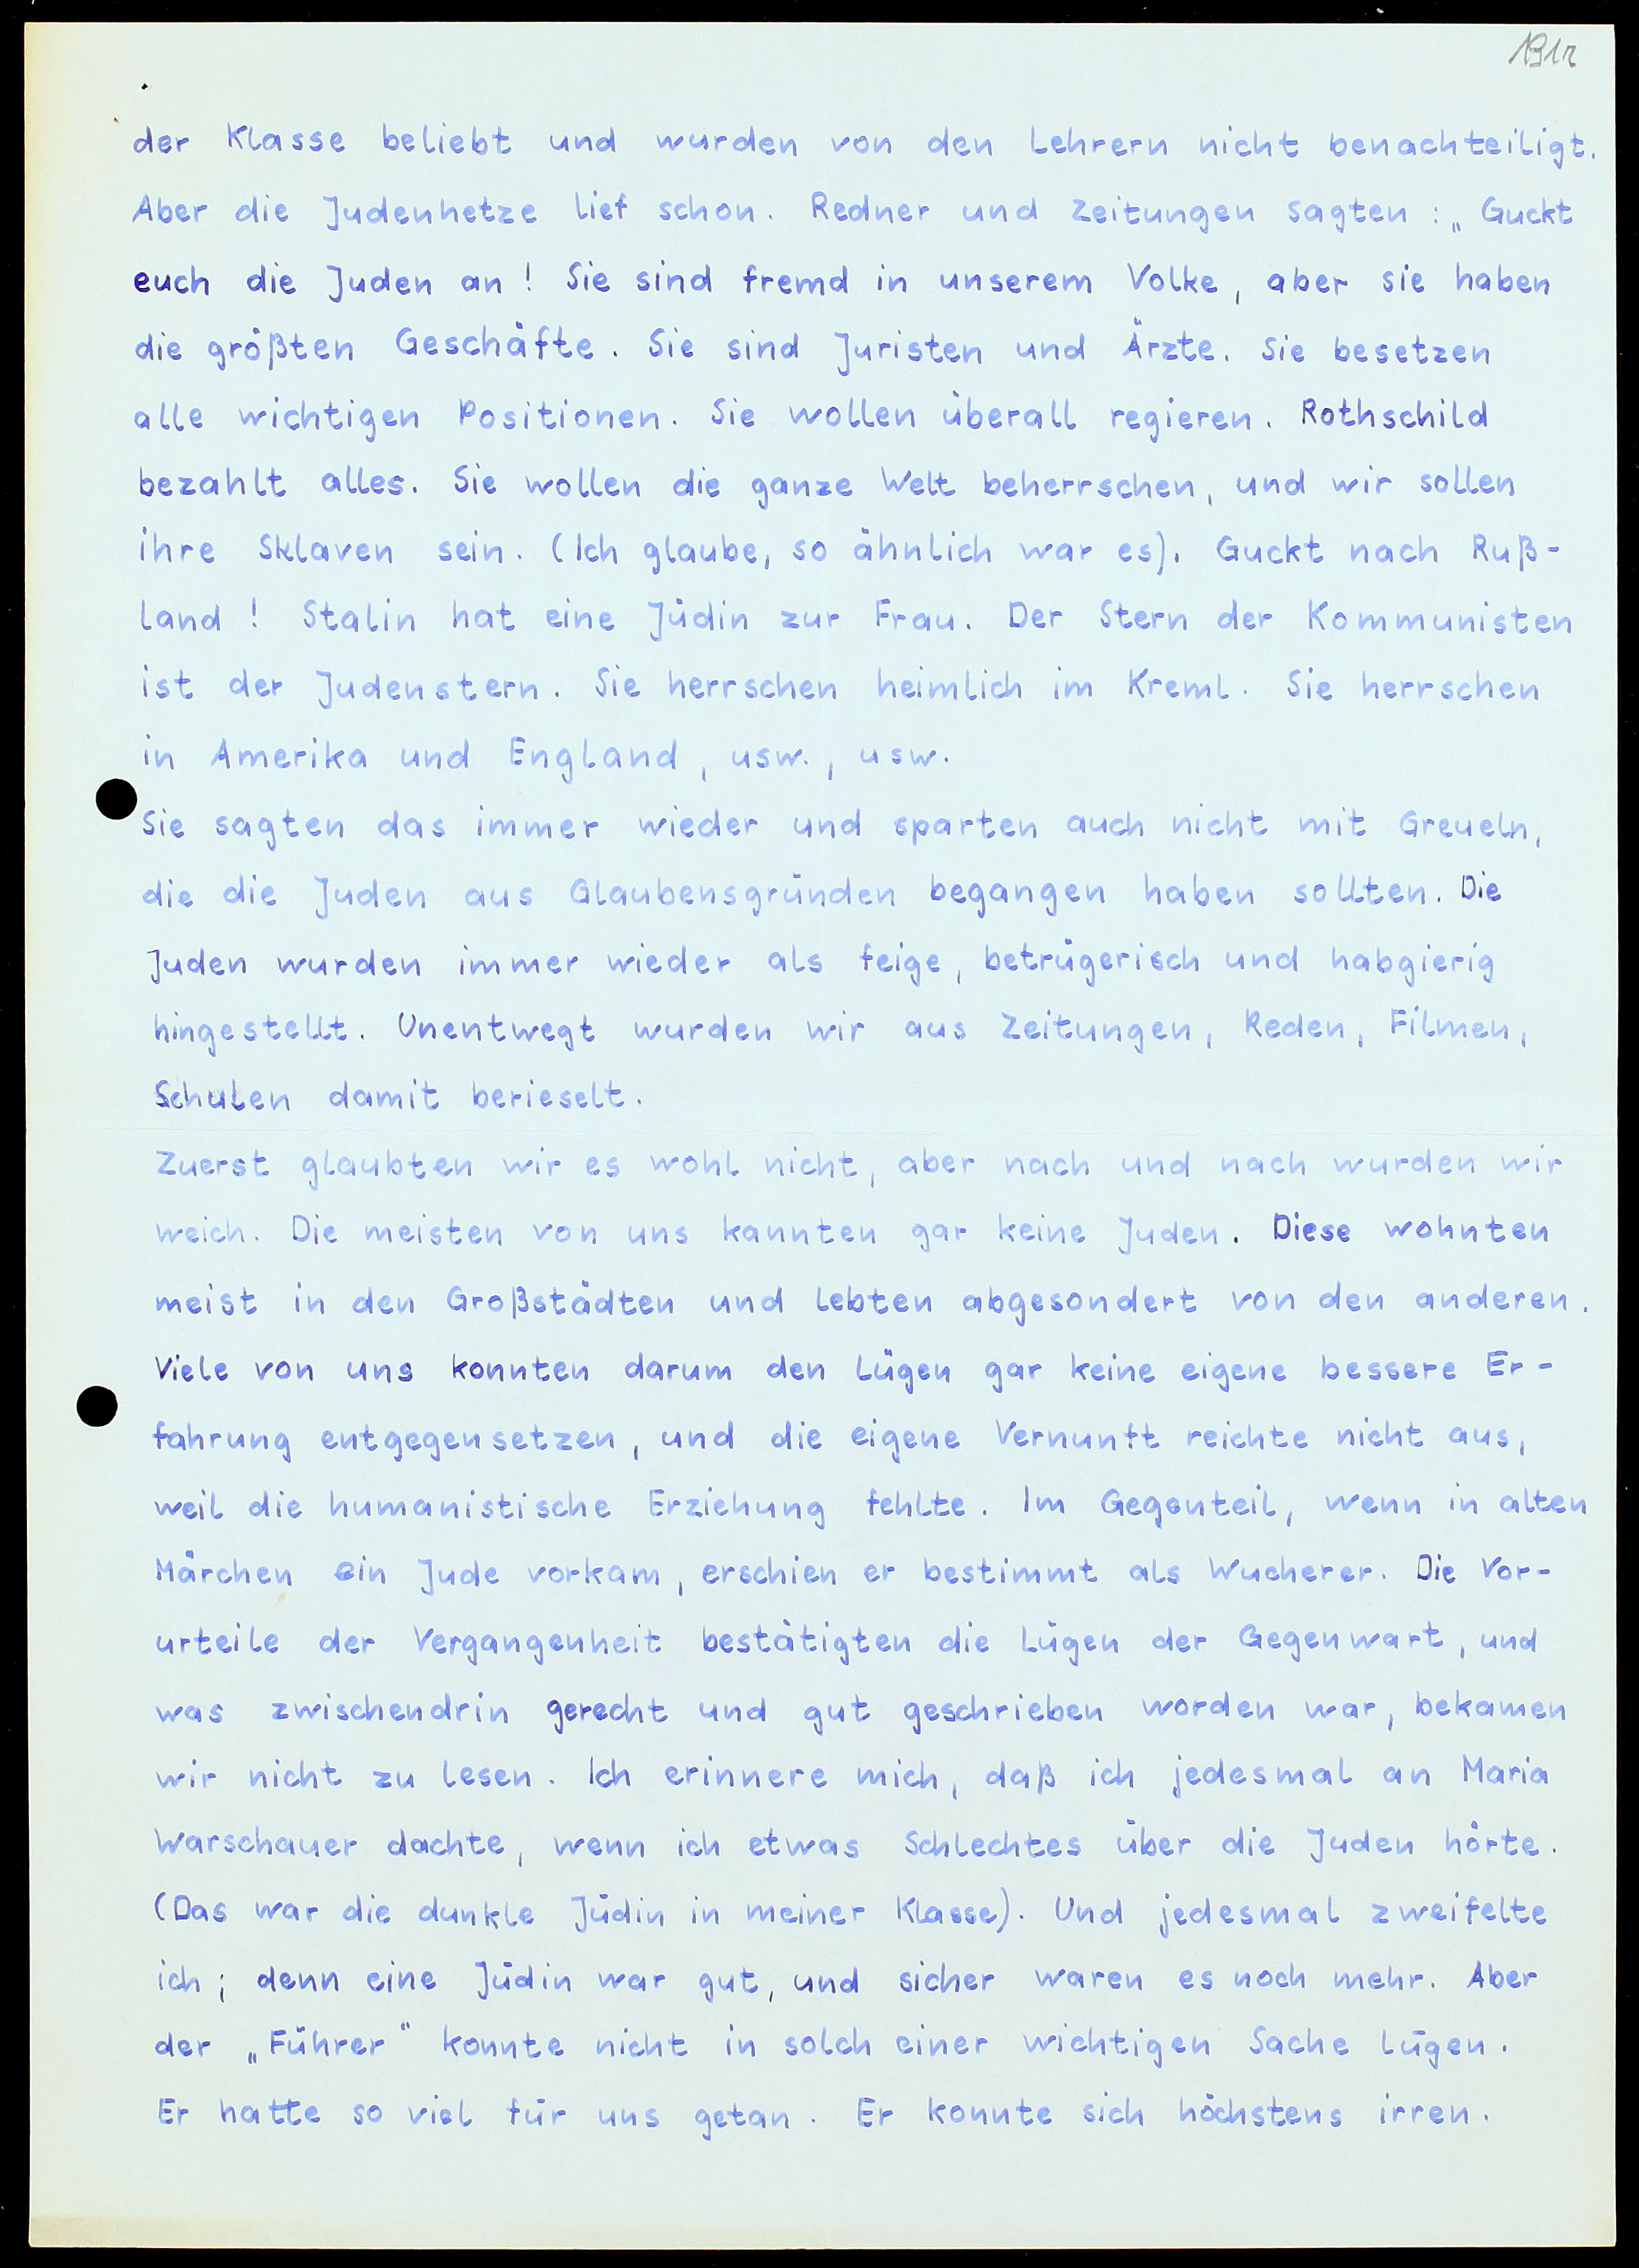 191r
der Klasse beliebt und wurden von den Lehrern nicht benachteiligt.
Aber die Judenhetze lief schon. Redner und Zeitungen sagten : „ Guckt
euch die Juden an ! Sie sind fremd in unserem Volke, aber sie haben
die größten Geschäfte. Sie sind Juristen und Ärzte. Sie besetzen
alle wichtigen Positionen. Sie wollen überall regieren. Rothschild
bezahlt alles. Sie wollen die ganze Welt beherrschen, und wir sollen
ihre Sklaven sein. (Ich glaube, so ähnlich war es). Guckt nach Ruß-
land ! Stalin hat eine Jüdin zur Frau. Der Stern der Kommunisten
ist der Judenstern. Sie herrschen heimlich im Kreml. Sie herrschen
in Amerika und England, usw., usw.
Sie sagten das immer wieder und sparten auch nicht mit Greueln,
die die Juden aus Glaubensgründen begangen haben sollten. Die
Juden wurden immer wieder als feige, betrügerisch und habgierig
hingestellt. Unentwegt wurden wir aus Zeitungen, Reden, Filmen,
Schulen damit berieselt.
Zuerst glaubten wir es wohl nicht, aber nach und nach wurden wir
weich. Die meisten von uns kannten gar keine Juden. Diese wohnten
meist in den Großstädten und lebten abgesondert von den anderen.
Viele von uns konnten darum den Lügen gar keine eigene bessere Er-
fahrung entgegensetzen, und die eigene Vernunft reichte nicht aus,
weil die humanistische Erziehung fehlte. Im Gegenteil, wenn in alten
Märchen ein Jude vorkam, erschien er bestimmt als Wucherer. Die Vor-
urteile der Vergangenheit bestätigten die Lügen der Gegenwart, und
was zwischendrin gerecht und gut geschrieben worden war, bekamen
wir nicht zu lesen. Ich erinnere mich, daß ich jedesmal an Maria
Warschauer dachte, wenn ich etwas Schlechtes über die Juden hörte.
(Das war die dunkle Jüdin in meiner Klasse). Und jedesmal zweifelte
ich; denn eine Jüdin war gut, und sicher waren es noch mehr. Aber
der „Führer" konnte nicht in solch einer wichtigen Sache lügen.
Er hatte so viel für uns getan. Er konnte sich höchstens irren.